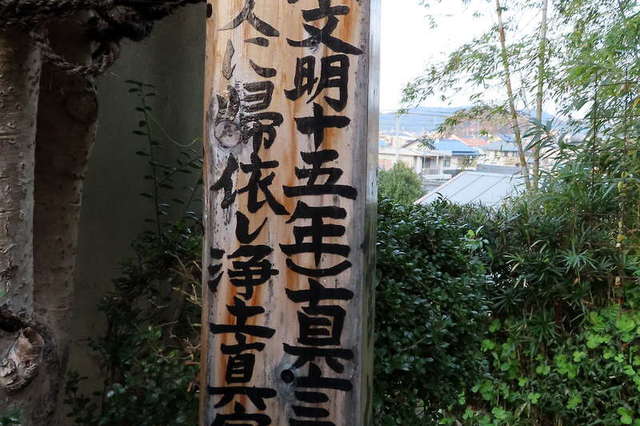 文明十五年)真言
人に帰依し浄土真宗